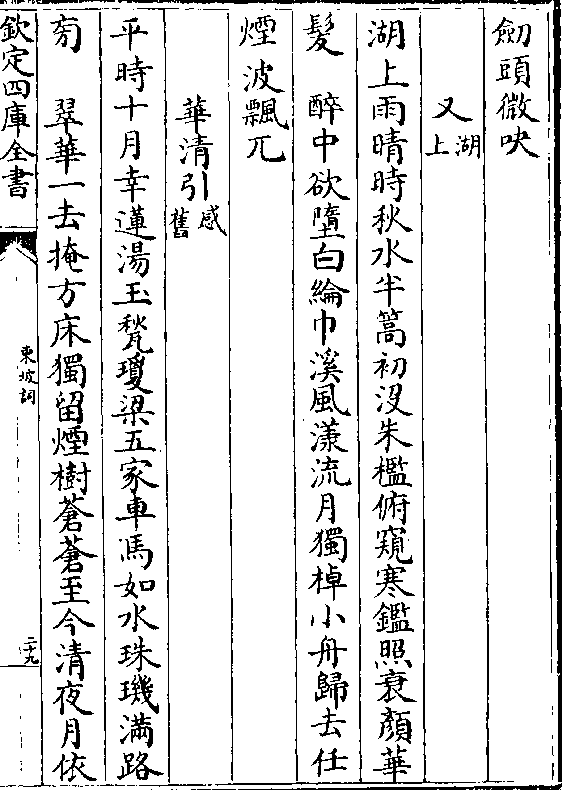 劒頭微吷
又 湖上
湖上雨晴時秋水半篙初没朱檻俯窺寒鑑照衰顏華
髮 醉中欲墮白綸巾溪風漾流月獨棹小舟歸去任
煙波飄兀
華清引 感舊
平時十月幸蓮湯玉甃瓊梁五家車馬如水珠璣滿路
旁 翠華一去掩方床獨留煙樹蒼蒼至今清夜月依
欽定四庫全書
東坡詞
二十九